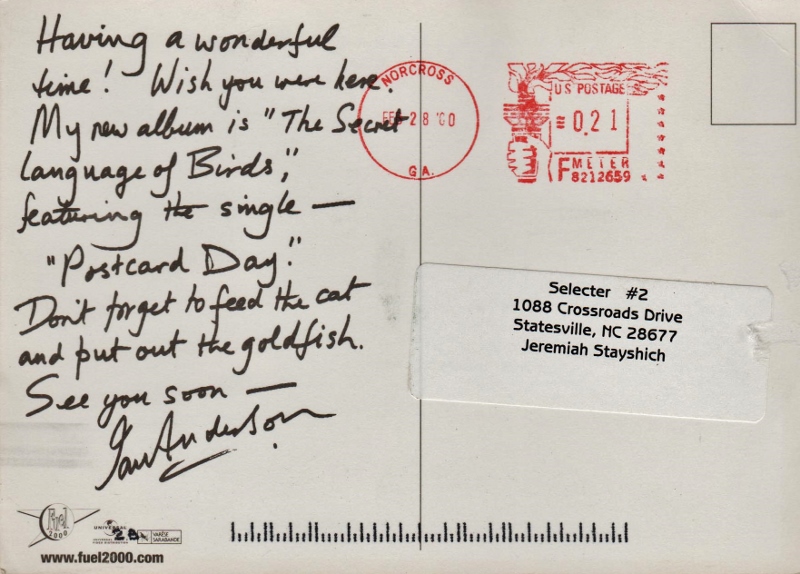 Having a wonderful
time! Wish you were here.
My new album is "The Secret
language of Birds",
featuring the single —
"Postcard Day."
Don't forget to feed the cat
and put out the goldfish.
See you soon —
Ian Anderson
NORCROSS
FEB 28 '00
GA.
U.S. POSTAGE
≡0.21
F METER
8212659
Selecter #2
1088 Crossroads Drive
Statesville, NC 28677
Jeremiah Stayshich
Fuel
2000
UNIVERSAL
VARÈSE
SARABANDE
www.fuel2000.com